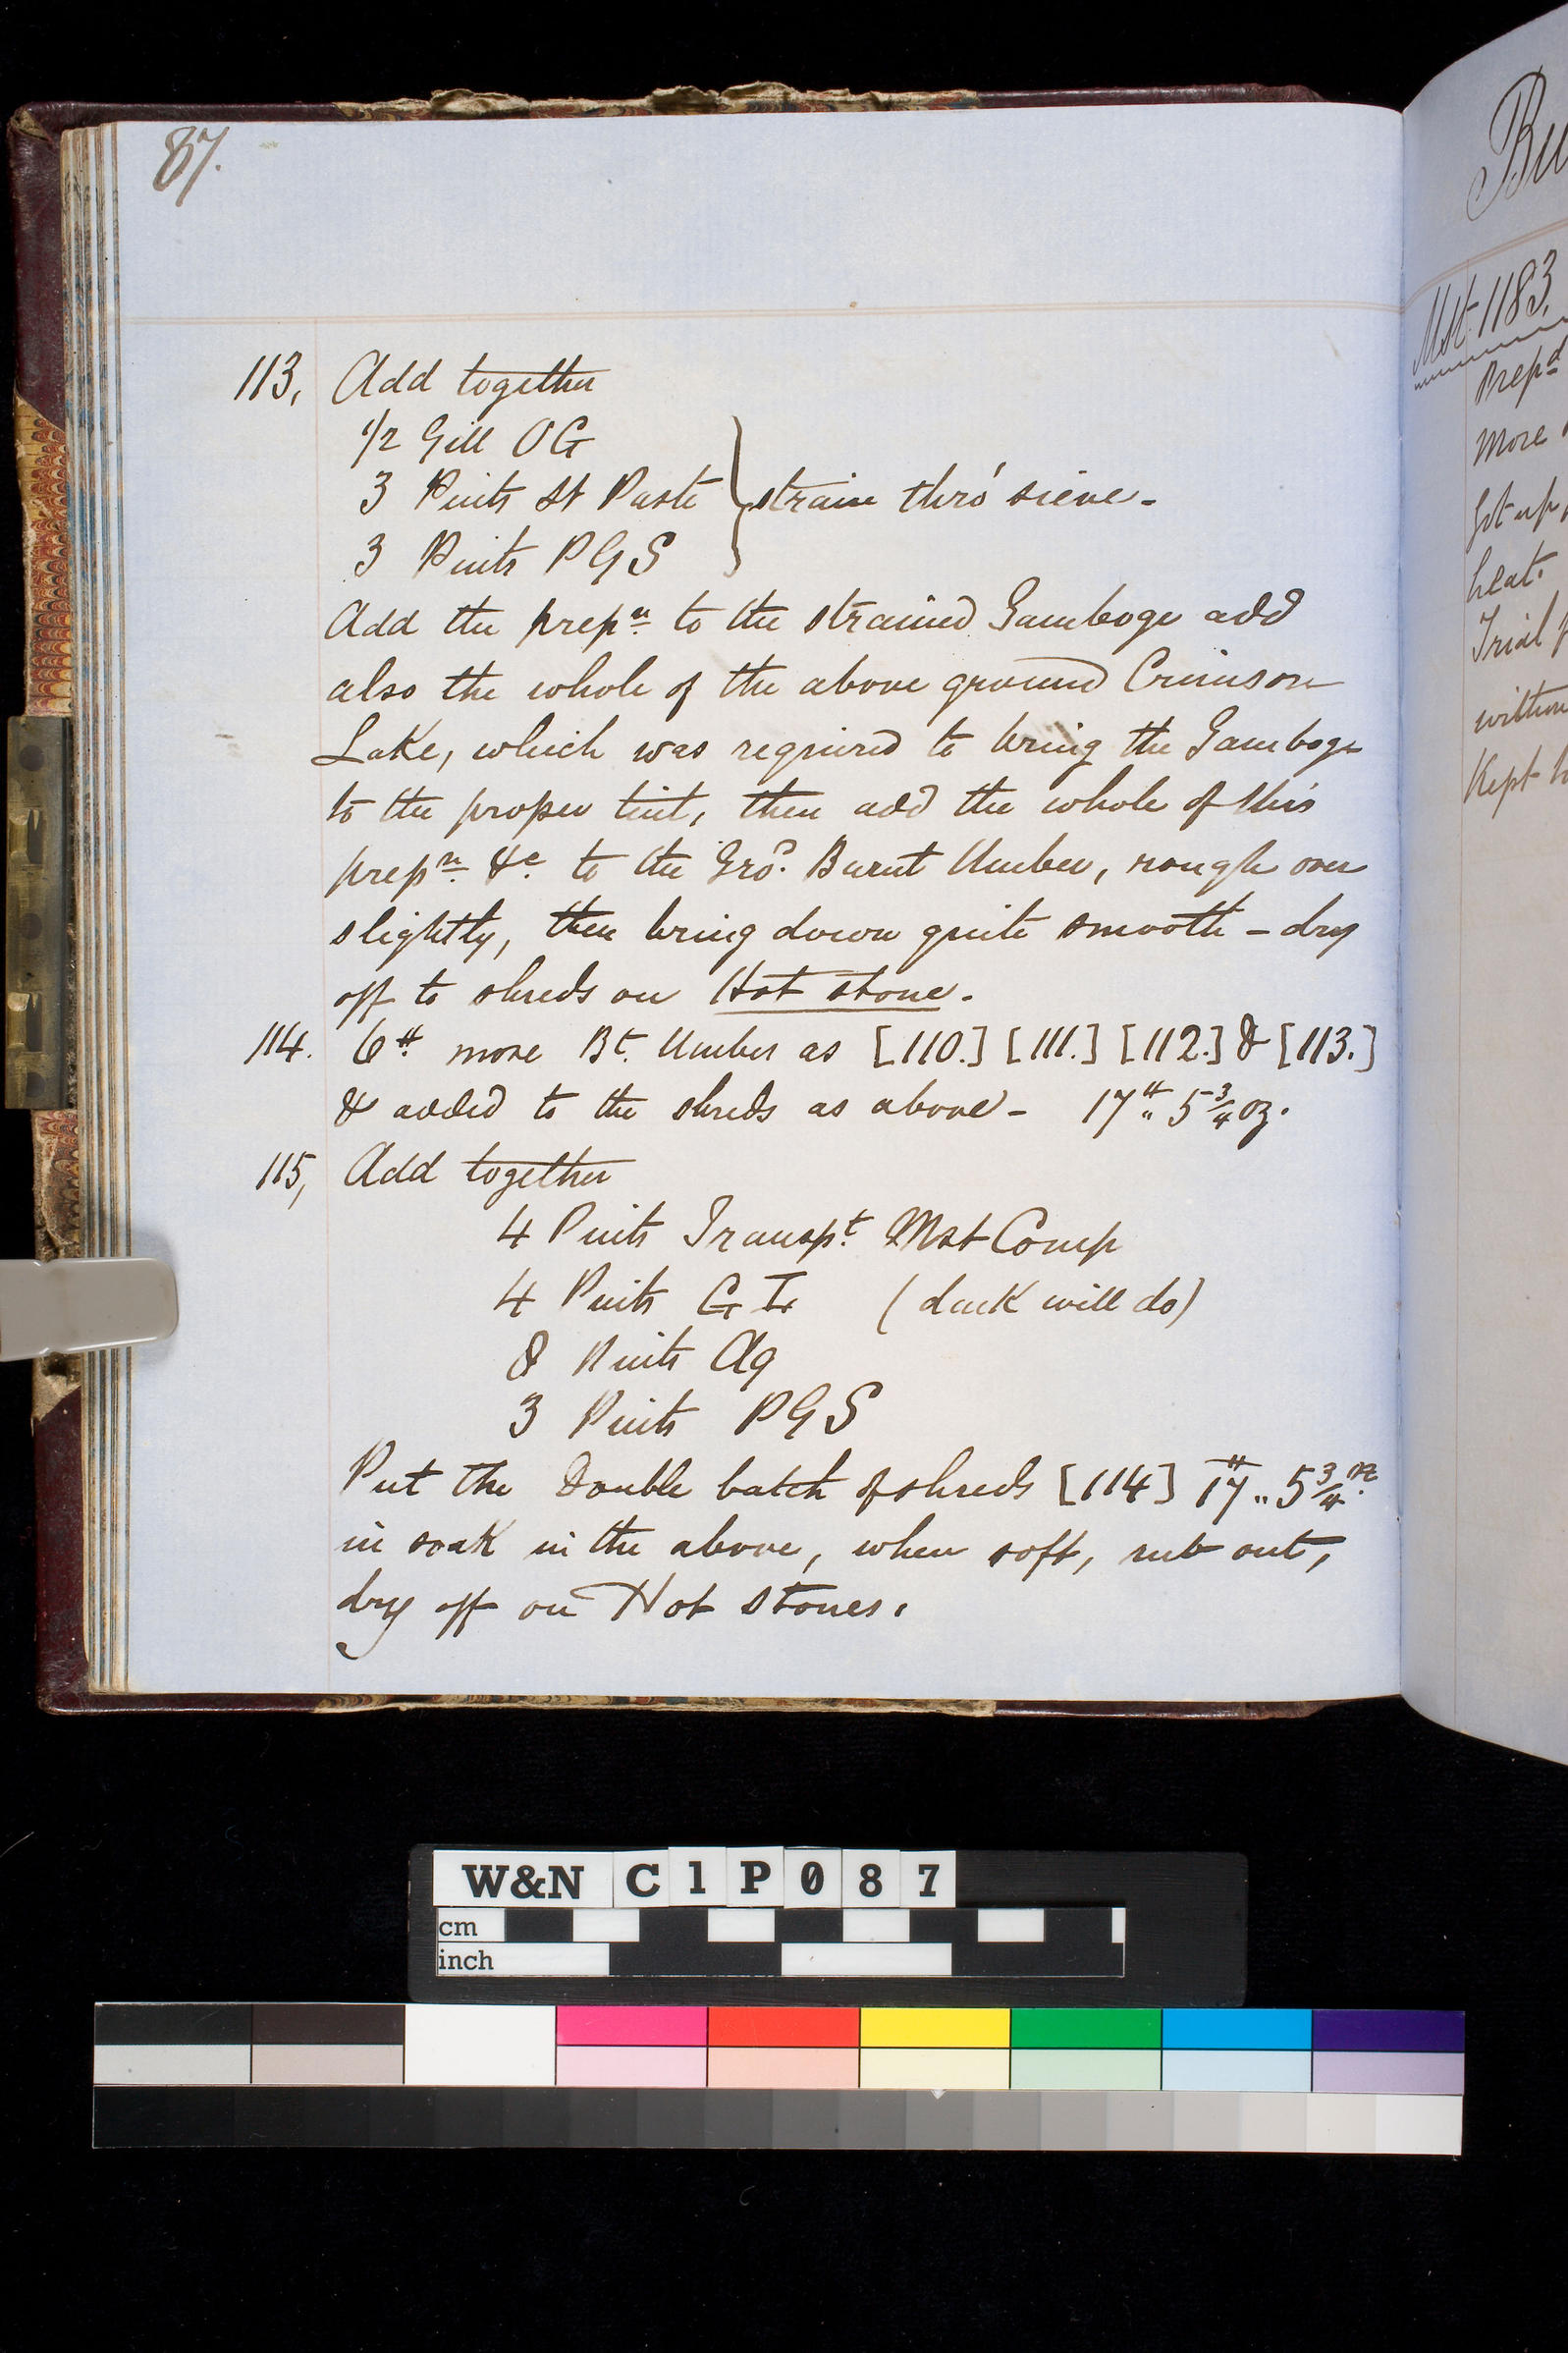 87.
113, Add together
1/2 Gill OG
3 Pints St Paste } strain thro' sieve -
3 Pints PGS
Add the prepn. to the strained Gamboge add
also the whole of the above ground Crimson
Lake, which was required to bring the Gamboge
to the proper tint, then add the whole of this
prepn. &c. to the Grod. Burnt Umber, rough over
slightly, then bring down quite smooth - dry
off to shreds on Hot stone.
114. 6 ℔ more Bt. Umber as [110.] [111.] [112.] & [113.]
& added to the shreds as above - 17℔ „ 5 3/4 oz.
115, Add together
4 Pints Transpt. Mst Comp
4 Pints G I (dark will do)
8 Pints Aq
3 Pints PGS
Put the Double batch of shreds [114] 17℔ „ 5 3/4 oz.
in soak in the above, when soft, rub out,
dry off on Hot stones.
Bu
Mst 1183.
Prepd
More
Got up
heat.
Trial
Kept
W&N C1P087
cm
inch